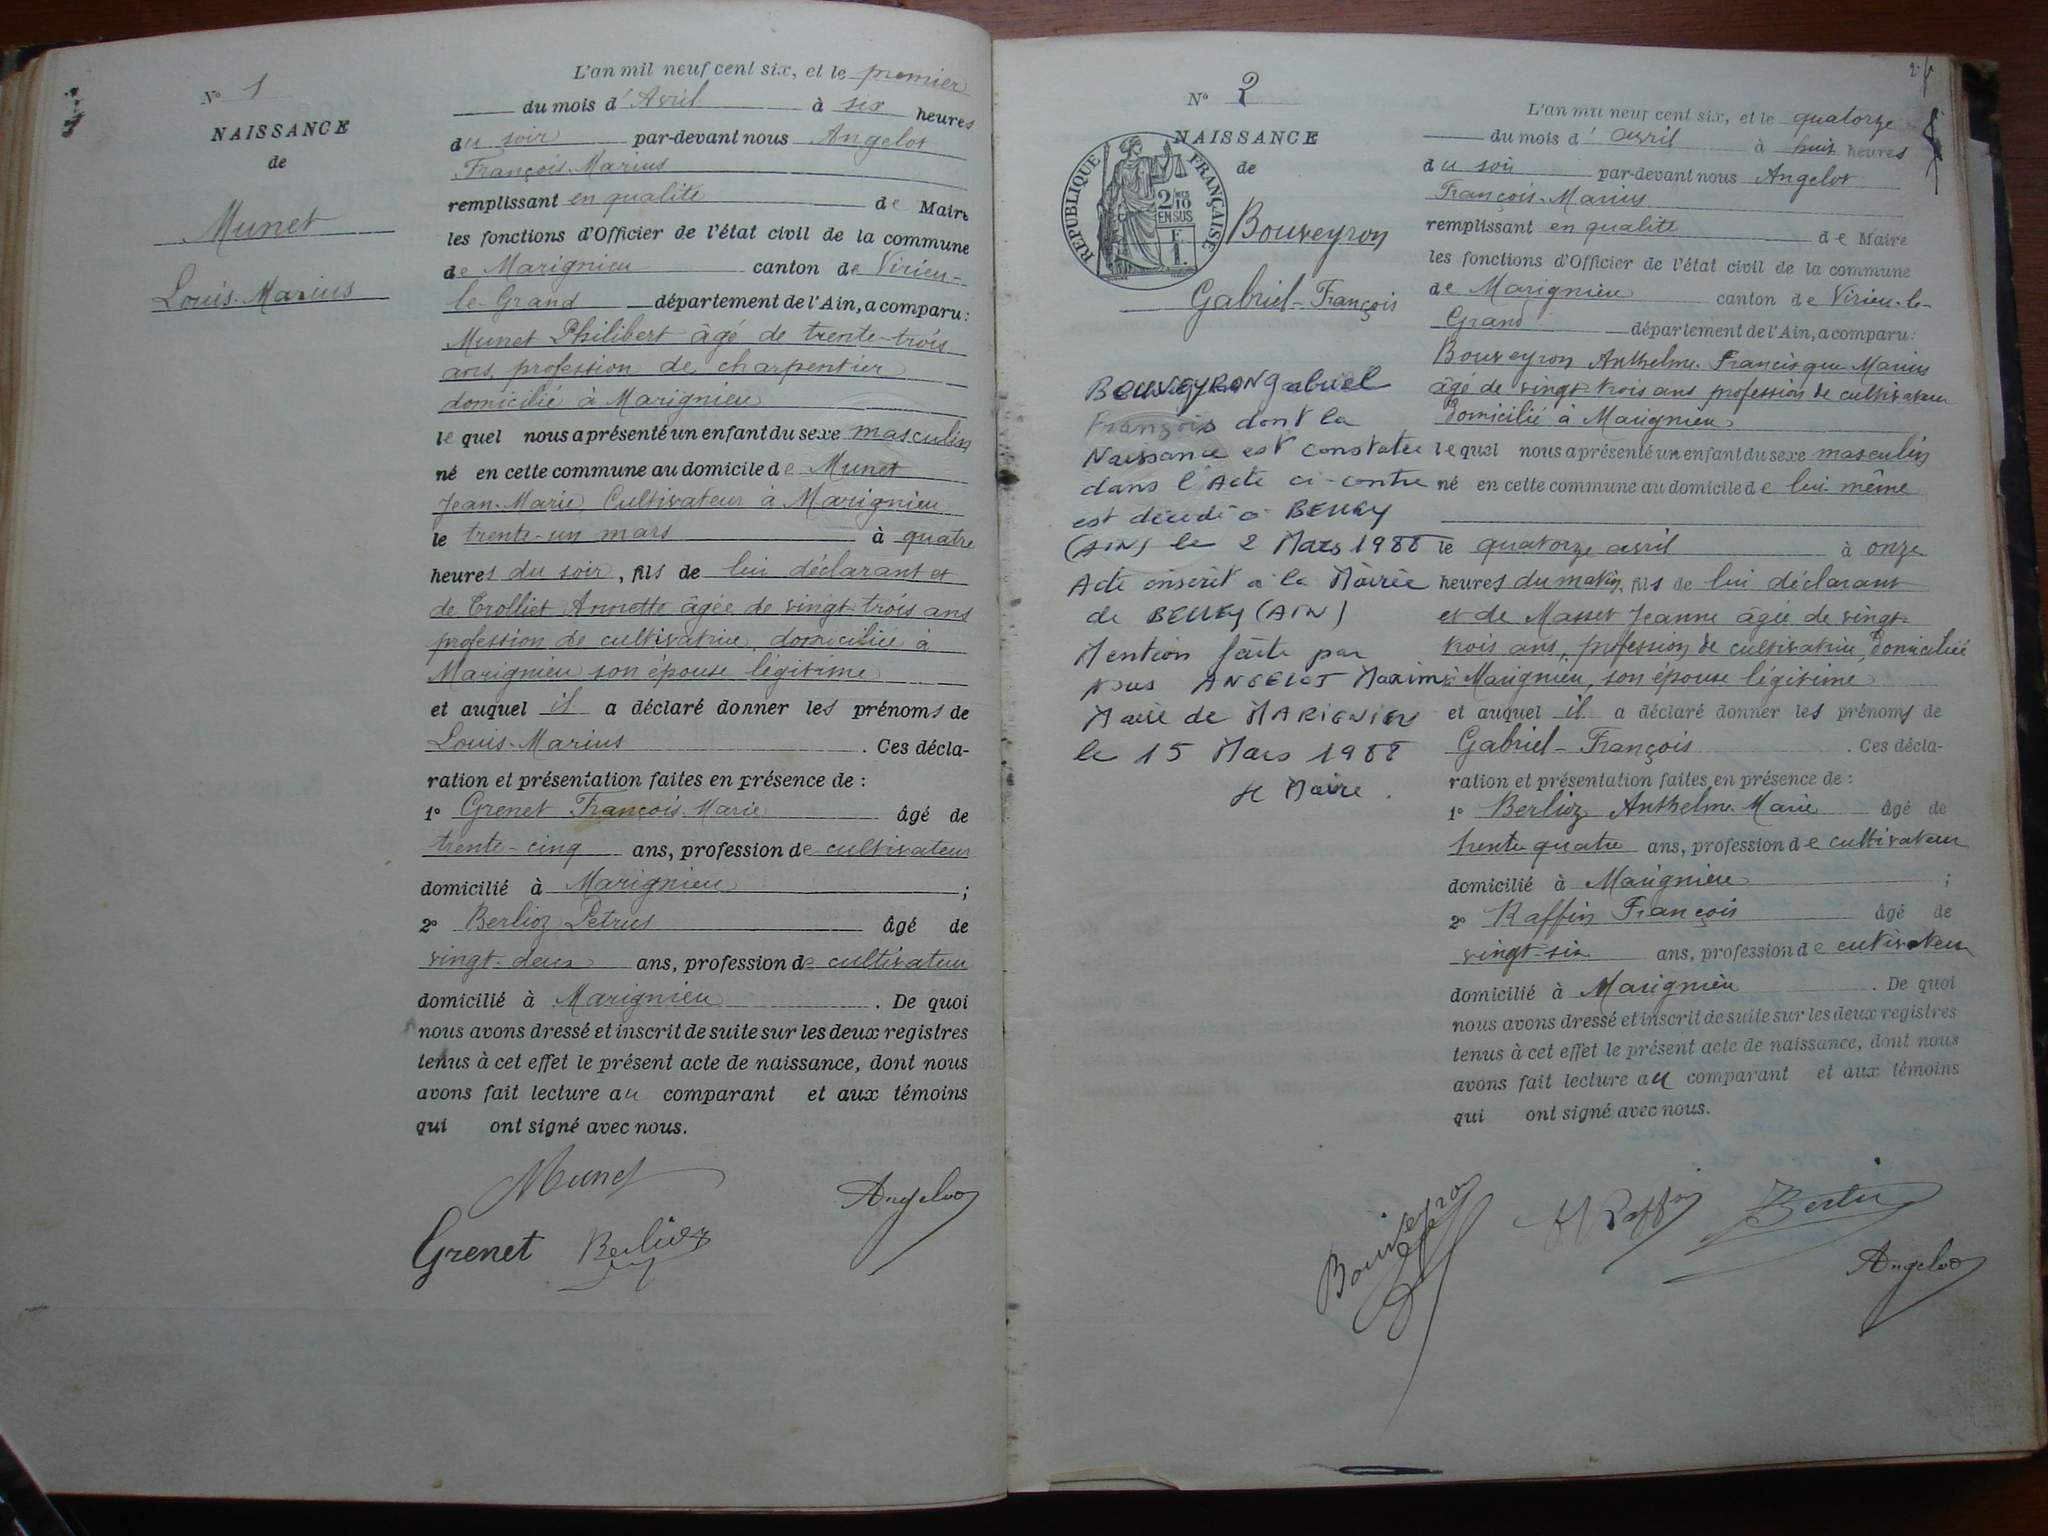 N° 1
NAISSANCE
de
Munet
Louis-Marius
L'an mil neuf cent six, et le premier
du mois d'Avril à six heures
du soir par-devant nous Angelot
François-Marius
remplissant en qualité de Maire
les fonctions d'Officier de l'état civil de la commune
de Marignieu canton de Virieu-
le-Grand département de l'Ain, a comparu :
Munet Philibert âgé de trente-trois
ans, profession de charpentier
domicilié à Marignieu
lequel nous a présenté un enfant du sexe masculin
né en cette commune au domicile de Munet
Jean-Marie Cultivateur à Marignieu
le trente-un mars à quatre
heures du soir, fils de lui déclarant et
de Trolliet Annette âgée de vingt-trois ans
profession de cultivatrice, domiciliée à
Marignieu son épouse légitime
et auquel il a déclaré donner les prénoms de
Louis-Marius . Ces décla-
ration et présentation faites en présence de :
1° Grenet François-Marie âgé de
trente-cinq ans, profession de cultivateur
domicilié à Marignieu ;
2° Berlioz Petrus âgé de
vingt-deux ans, profession de cultivateur
domicilié à Marignieu . De quoi
nous avons dressé et inscrit de suite sur les deux registres
tenus à cet effet le présent acte de naissance, dont nous
avons fait lecture au comparant et aux témoins
qui ont signé avec nous.
Munet
Angelot
Grenet Berlioz
N° 2
NAISSANCE
de
RÉPUBLIQUE FRANÇAISE
2/10
EN SUS
Bouveyron
Gabriel-François
BOUVEYRON Gabriel
François dont la
Naissance est constatée
dans l'Acte ci-contre
est décédé à BELLEY
(AIN) le 2 Mars 1988
Acte inscrit à la Mairie
de BELLEY (AIN)
Mention faite par
Nous ANGELOT Maxime
Maire de MARIGNIEU
le 15 Mars 1988
Le Maire.
L'an mil neuf cent six, et le quatorze
du mois d'avril à huit heures
du soir par-devant nous Angelot
François-Marius
remplissant en qualité de Maire
les fonctions d'Officier de l'état civil de la commune
de Marignieu canton de Virieu-le-
Grand département de l'Ain, a comparu :
Bouveyron Anthelme Francisque Marius
âgé de vingt-trois ans profession de cultivateur
domicilié à Marignieu
lequel nous a présenté un enfant du sexe masculin
né en cette commune au domicile de lui-même
le quatorze avril à onze
heures du matin, fils de lui déclarant
et de Masset Jeanne âgée de vingt-
trois ans, profession de cultivatrice, domiciliée
à Marignieu, son épouse légitime
et auquel il a déclaré donner les prénoms de
Gabriel-François . Ces décla-
ration et présentation faites en présence de :
1° Berlioz Anthelme Marie âgé de
trente quatre ans, profession de cultivateur
domicilié à Marignieu ;
2° Raffin François âgé de
vingt-six ans, profession de cultivateur
domicilié à Marignieu . De quoi
nous avons dressé et inscrit de suite sur les deux registres
tenus à cet effet le présent acte de naissance, dont nous
avons fait lecture au comparant et aux témoins
qui ont signé avec nous.
Bouveyron
Raffin
Angelot